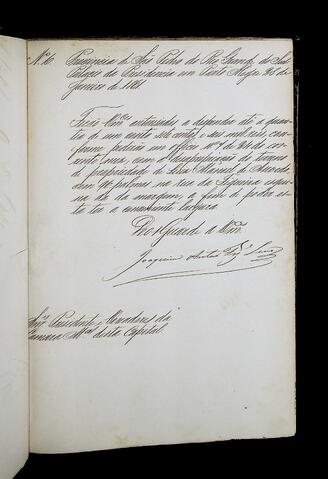 Nº 6 Provincia de São Pedro do Rio Grande do Sul
Palacio da Presidencia em Porto Alegre 26 de
Janeiro de 1861
Ficão Vmces autorisados a despender até a quan-
tia de um conto e seis mil reis, con-
forme pedirão em officio nº 7 de 24 do cor-
rente mez, com a desapropriação do terreno
de propriedade de Manoel de Azevedo,
com palmos na rua da Figueira esquina
da da margem, a fim de poder es-
ta ter a conveniente largura.
Deos Guarde a Vmces
Joaquim Antão Fez Leão
Snrs Presidente e Vereadores da
Camara Mal desta Capital